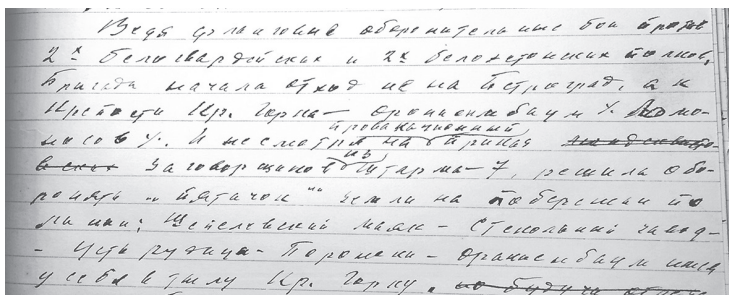 Ведя фланговые оборонительные бои против
2х белогвардейских и 2х белоэстонских полков,
Бригада начала отход не на Петроград, а к
крепости Кр. Горка — Ораниенбаум /. Ломо-
носов /. И несмотря на провокационный приказ
заговорщиков из штарма-7, решила обо-
ронять „пятачок“ земли на побережьи по
линии: Шепелевский маяк — Стекольный завод —
— Усть Рудица — Порожки — Ораниенбаум имея
у себя в тылу Кр. Горку,